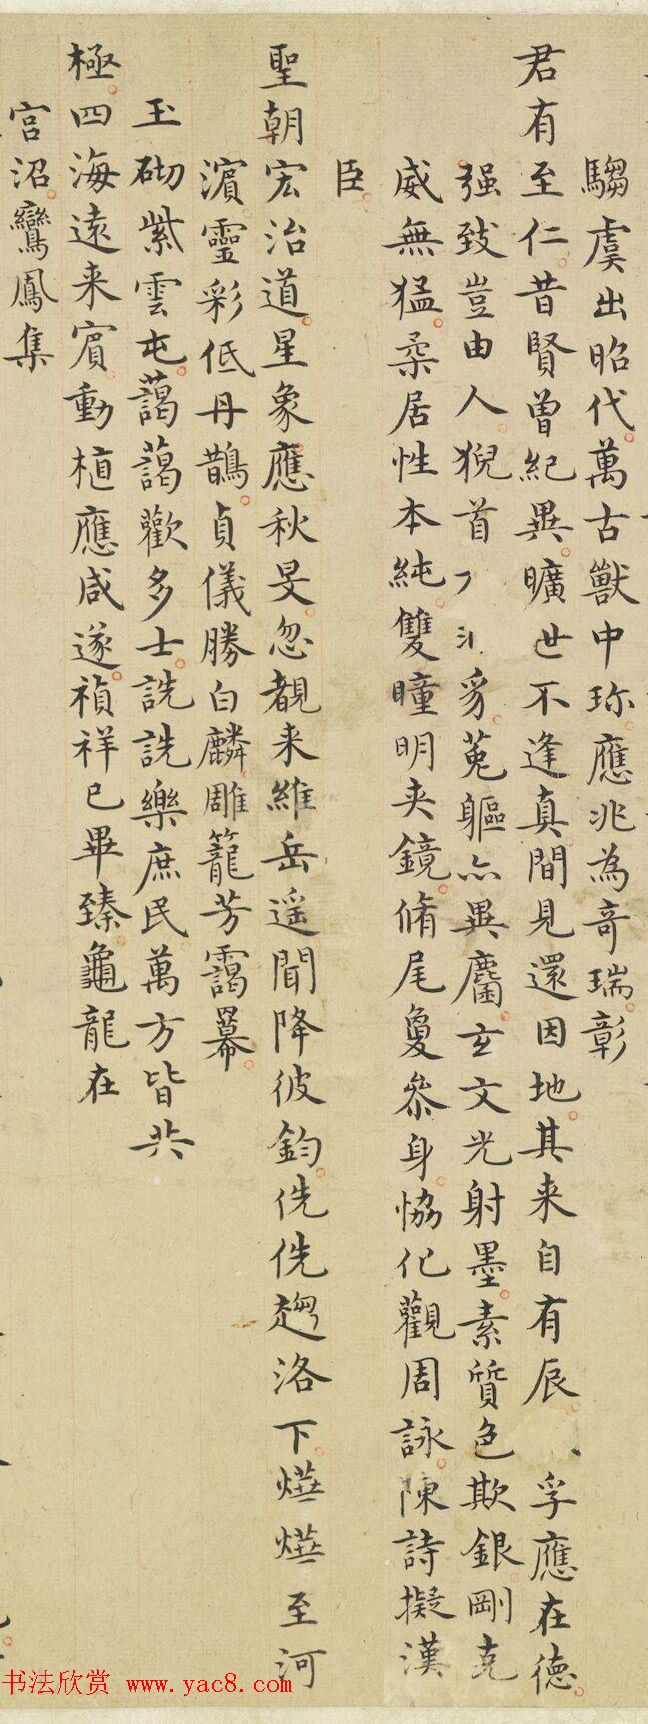 騶虞出昭代萬古獸中珎應兆為奇瑞彰
君有至仁昔賢曾紀異曠世不逢真間見還因地其来自有辰孚應在德
强致豈由人猊首豸菟軀亦異麕玄文光射墨素質色欺銀剛克
威無猛柔居性本純雙瞳明夹鏡脩尾敻叅身恊化觀周詠陳詩擬漢
臣
聖朝宏治道星象應秋旻忽覩来維岳遥聞降彼鈞侁侁趨洛下爗爗至河
濵靈彩低丹鵲貞儀勝白麟雕籠芳靄羃
玉砌紫雲屯藹藹歡多士詵詵樂庶民萬方皆共
極四海遠来賓動植應咸遂禎祥已畢臻龜龍在
宫沼鸞鳳集
书法欣赏 www.yac8.com